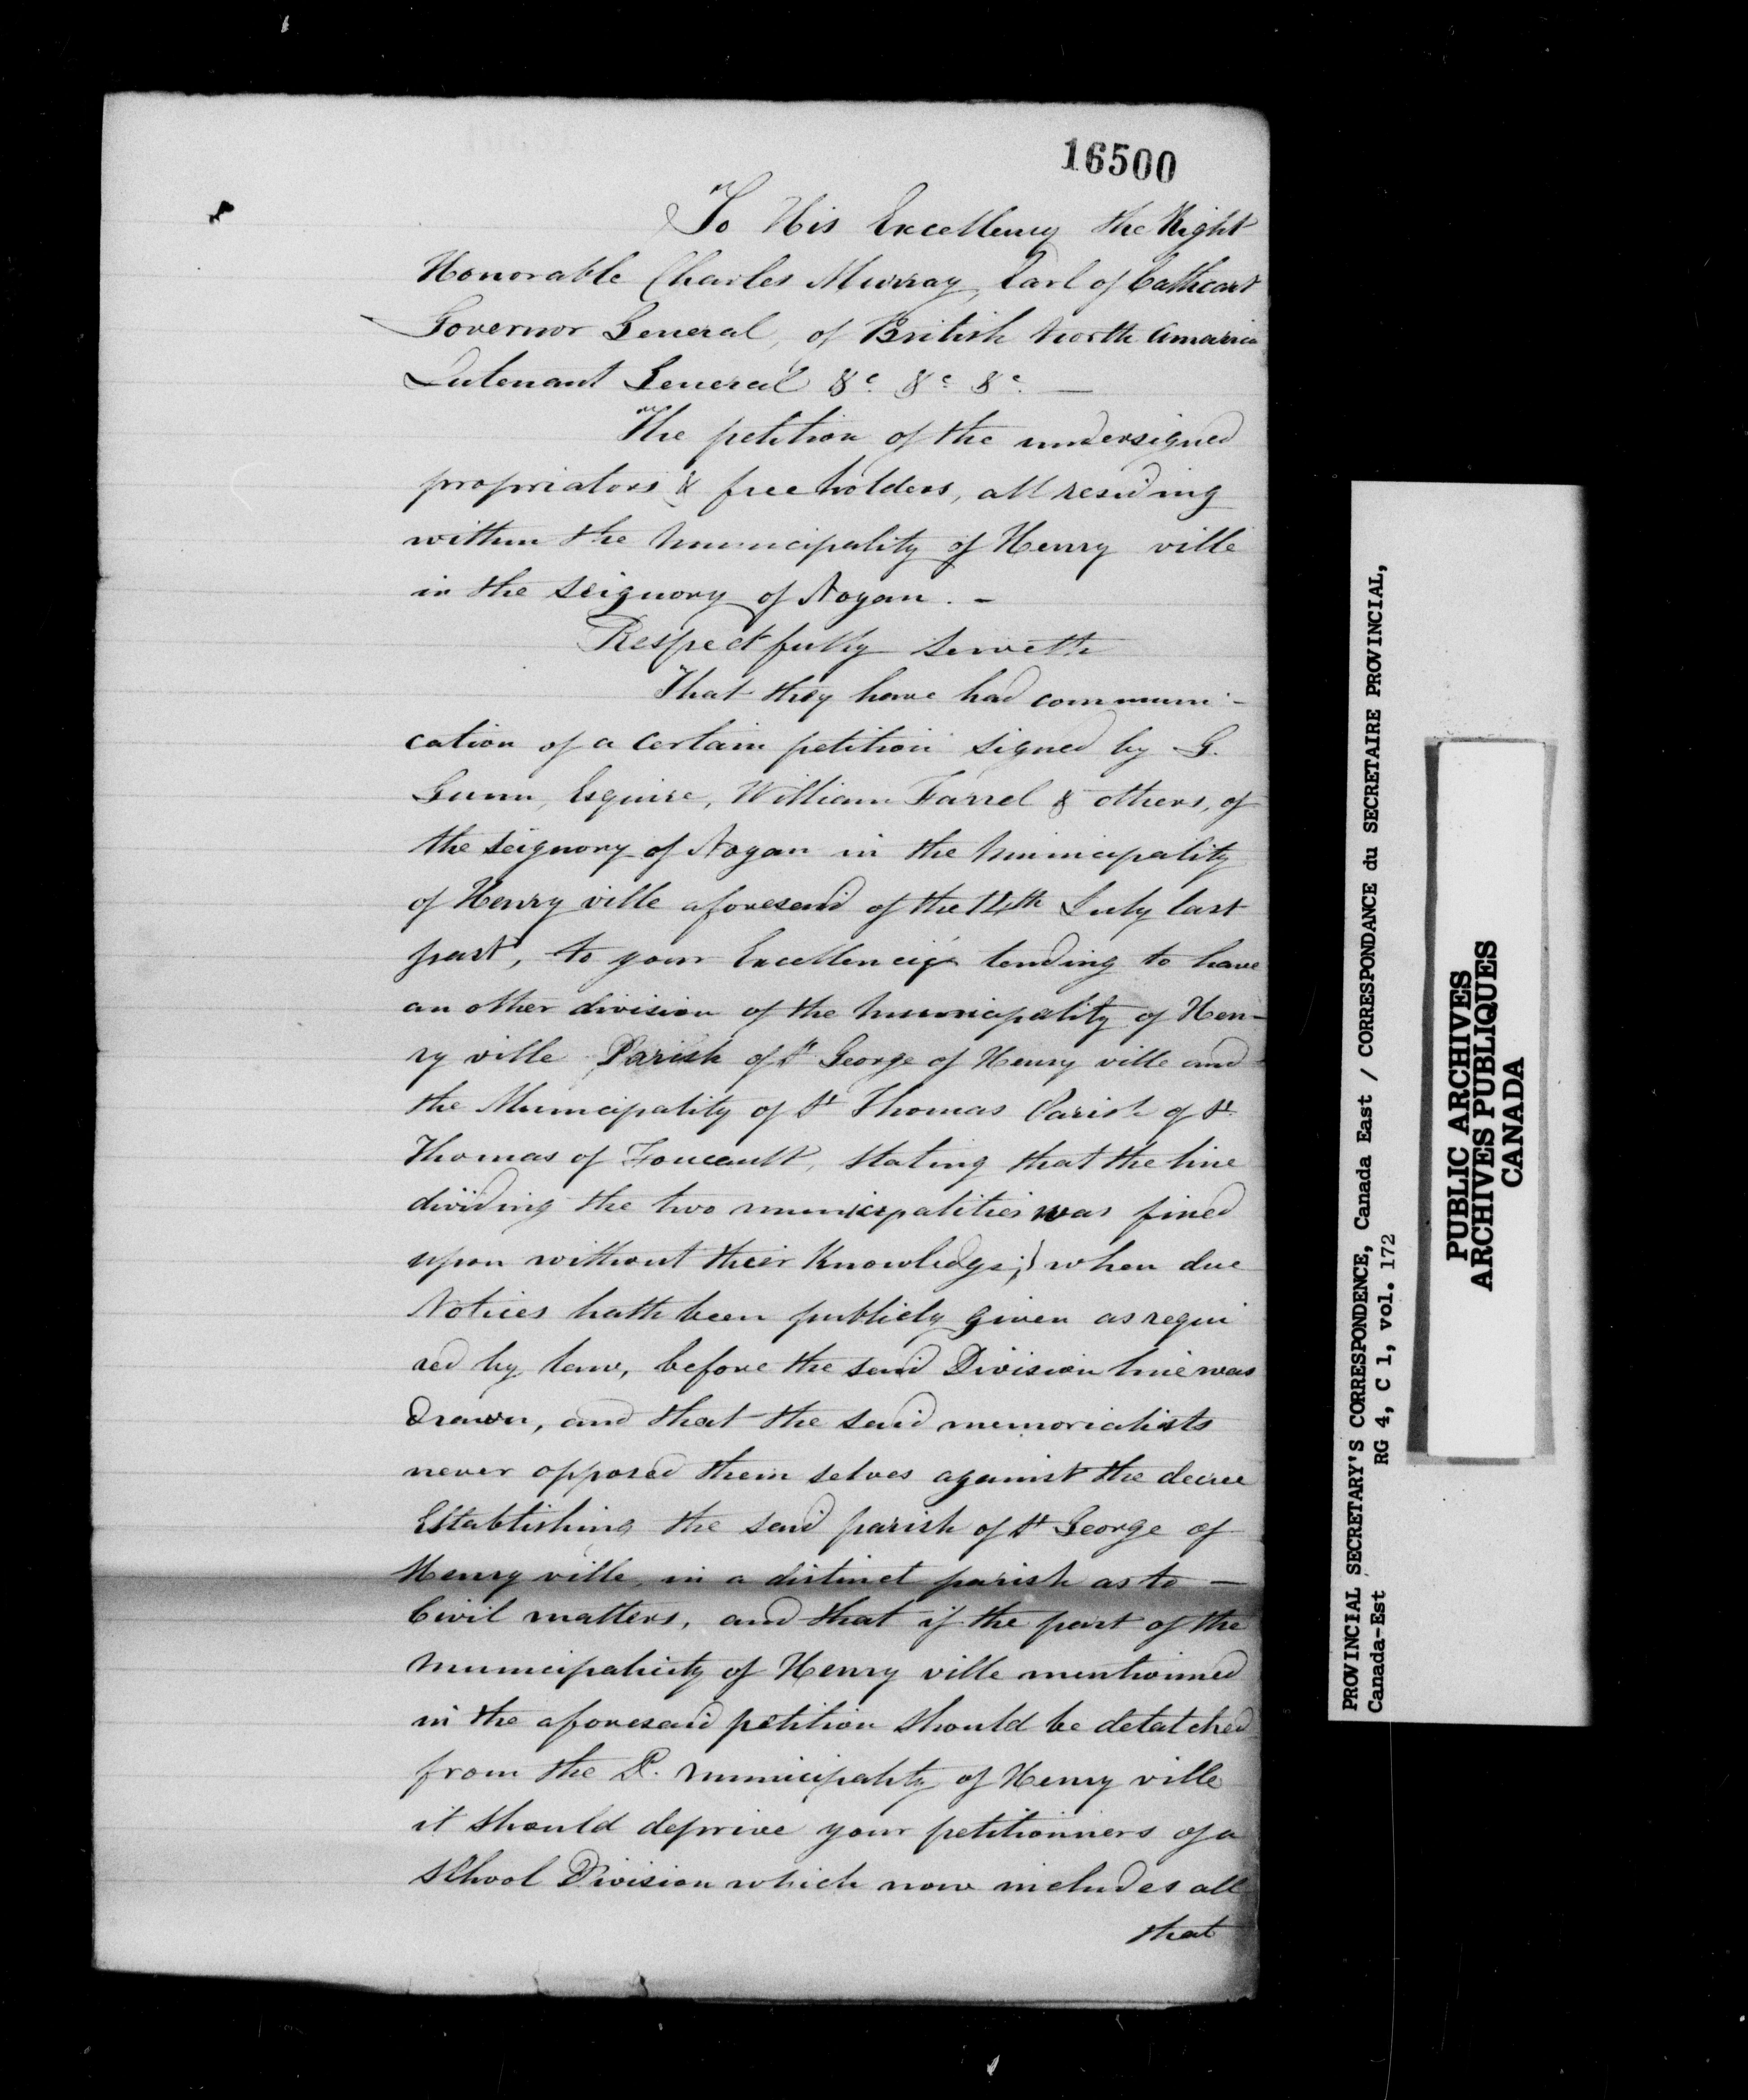 16500
To His Excellency the Right
Honorable Charles Murray, Earl of Cathcart
Governor General, of British North America
Lutenant General &c. &c. &c. —
The petition of the undersigned
propriators & free holders, all residing
within the Municipality of Henry ville
in the Seignory of Noyan. —
Respectfully Sheweth
That they have had communi-
cation of a certain petition signed by G.
Gunn, Esquire, William Farrel & others, of
the Seignory of Noyan in the Municipality
of Henry ville aforesaid of the 14th July last
past, to your Excellency tending to have
an other division of the Municipality of Hen-
ry ville Parish of St George of Henry ville and
the Municipality of St Thomas Parish of St
Thomas of Foucault, stating that the line
dividing the two municipalities was fixed
upon without their Knowledge; when due
Notices hath been publicly given as requi
red by law, before the said Division line was
Drawn, and that the said memorialists
never opposed them selves against the decree
Establishing the said parish of St George of
Henry ville, in a distinct parish as to —
Civil matters, and that if the part of the
Municipalicity of Henry ville mentionned
in the aforesaid petition should be detatched
from the P. Municipality of Henry ville
it should deprive your petitionners of a
School Division which now includes all
that
PROVINCIAL SECRETARY'S CORRESPONDENCE, Canada East / CORRESPONDANCE du SECRETAIRE PROVINCIAL,
Canada-Est RG 4, C 1, vol. 172
PUBLIC ARCHIVES
ARCHIVES PUBLIQUES
CANADA